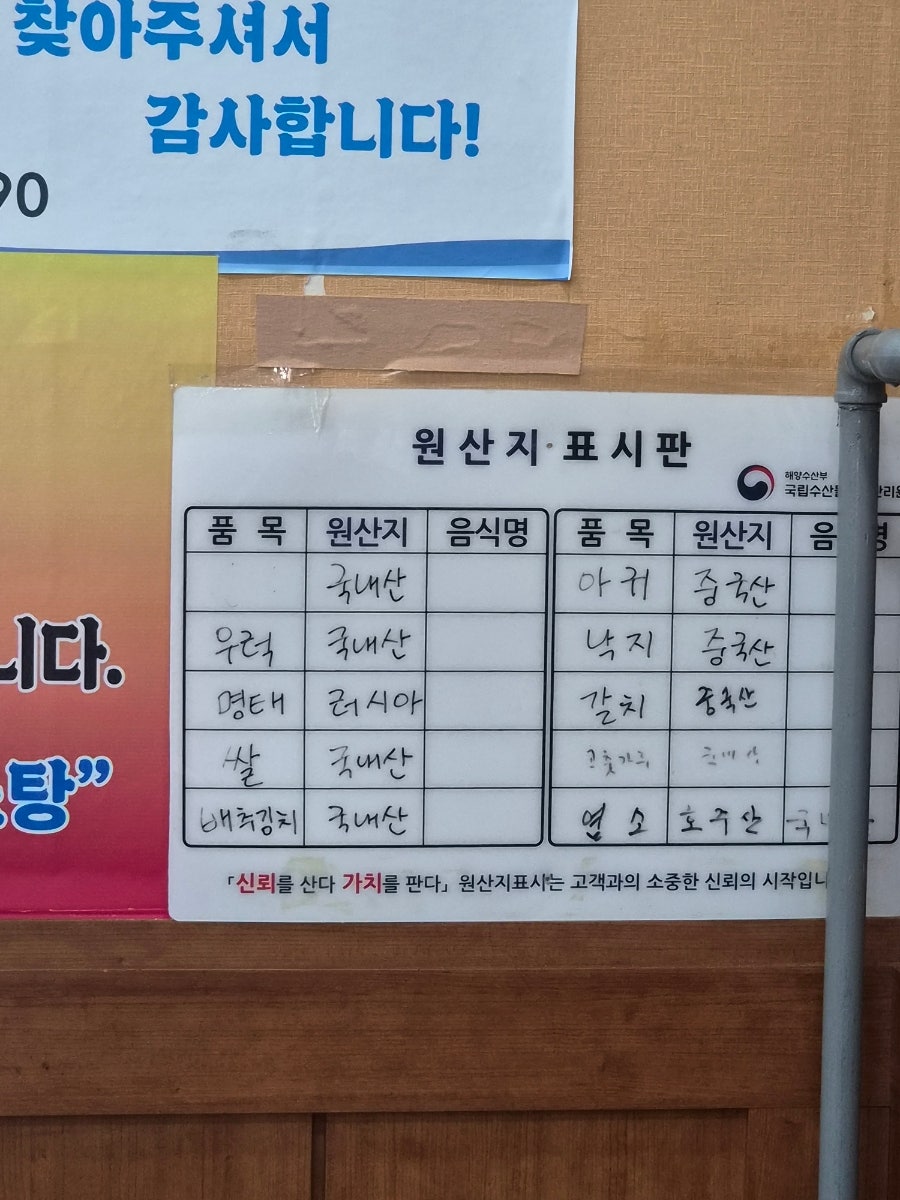 찾아주셔서
감사합니다!
90
니다.
탕”
원산지 표시판
해양수산부
국립수산
품 목 원산지 음식명 품 목 원산지 음
국내산 아귀 중국산
우럭 국내산 낙지 중국산
명태 러시아 갈치 중국산
쌀 국내산 고춧가루 국내산
배추김치 국내산 염소 호주산
「신뢰를 산다 가치를 판다」 원산지표시는 고객과의 소중한 신뢰의 시작입니